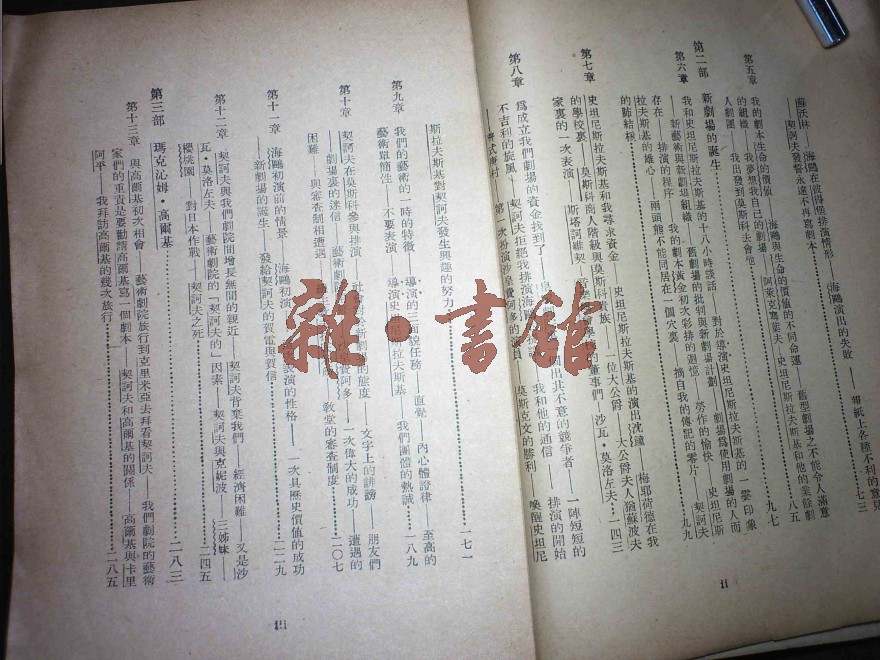 蘇沃林——海鷗在彼得堡排演情形——海鷗演出的失敗——報紙上各種不利的意見
——契訶夫發誓永遠不再寫劇本……七三
第五章
我的劇本生命的價值——海鷗與生命的價值的不同命運——舊型劇場之不能令人滿意
的組織——我夢想我自己的劇場——阿萊克塞葉夫·史坦尼斯拉夫斯基和他的業餘劇
人劇團——我出發到莫斯科去會他……八五
第二部 新劇場的誕生……九七
第六章
我和史坦尼斯拉夫斯基的十八小時談話——對於導演史坦尼斯拉夫斯基的一些印象
——新藝術與新劇場組織——舊劇場的批判與新劇場計劃——劇場為使用劇場的人而
存在——排演的程序——兩頭熊不能同居在一個穴裏——摘自我的傳記的零片——契訶夫
的肺結核……九九
第七章
史坦尼斯拉夫斯基和我尋求資金——史坦尼斯拉夫斯基的演出沈鐘——梅耶荷德在我
的學校裏——莫斯科商人階級與莫斯科貴族——一位大公爵——大公爵夫人猶蘇波夫
家裏的一次表演——斯塔訶維契——董事們——沙瓦·莫洛左夫……一四三
第八章
為成立我們劇場的資金找到了——出其不意的競爭者——一陣短短的
不吉利的旋風——契訶夫拒絕我排演海鷗——我和他的通信——排演的開始
——第一次扮演沙皇費阿多的演員——莫斯克文的勝利——喚醒史坦尼
ii
斯拉夫斯基對契訶夫發生興趣的努力……一七一
第九章
我們的藝術的一時的特徵——導演的三面貌任務——直覺——內心體證律——至高的
藝術單簡性——不要表演——導演史坦尼斯拉夫斯基——我們團體的熱誠……一八九
第十章
契訶夫在莫斯科參與排演——社會對新劇場的態度——文字上的誹謗——朋友們
——劇場裏的迷信——藝術劇——沙皇費阿多——一次偉大的成功——遭遇的
困難——與審查制相遭遇——教堂的審查制度……二〇七
第十一章
海鷗初演前的情景——海鷗初演——表演的性格——一次具歷史價值的成功
——新劇場的誕生——發給契訶夫的賀電與賀信……二二九
第十二章
契訶夫與我們劇院間增長無間的親近——契訶夫背棄我們——經濟困難——又是沙
瓦·莫洛左夫——藝術劇院的「契訶夫的」因素——契訶夫與克妮波——三姊妹——
櫻桃園——對日本作戰——契訶夫之死……二四五
第三部 瑪克沁姆·高爾基……二八三
第十三章
與高爾基初次相會——藝術劇院旅行到克里米亞去拜看契訶夫——我們劇院的藝術
家們的重責是要勸請高爾基寫一個劇本——契訶夫和高爾基的關係——高爾基與卡里
阿平——我拜訪高爾基的幾次旅行……二八五
iii
雜·書館